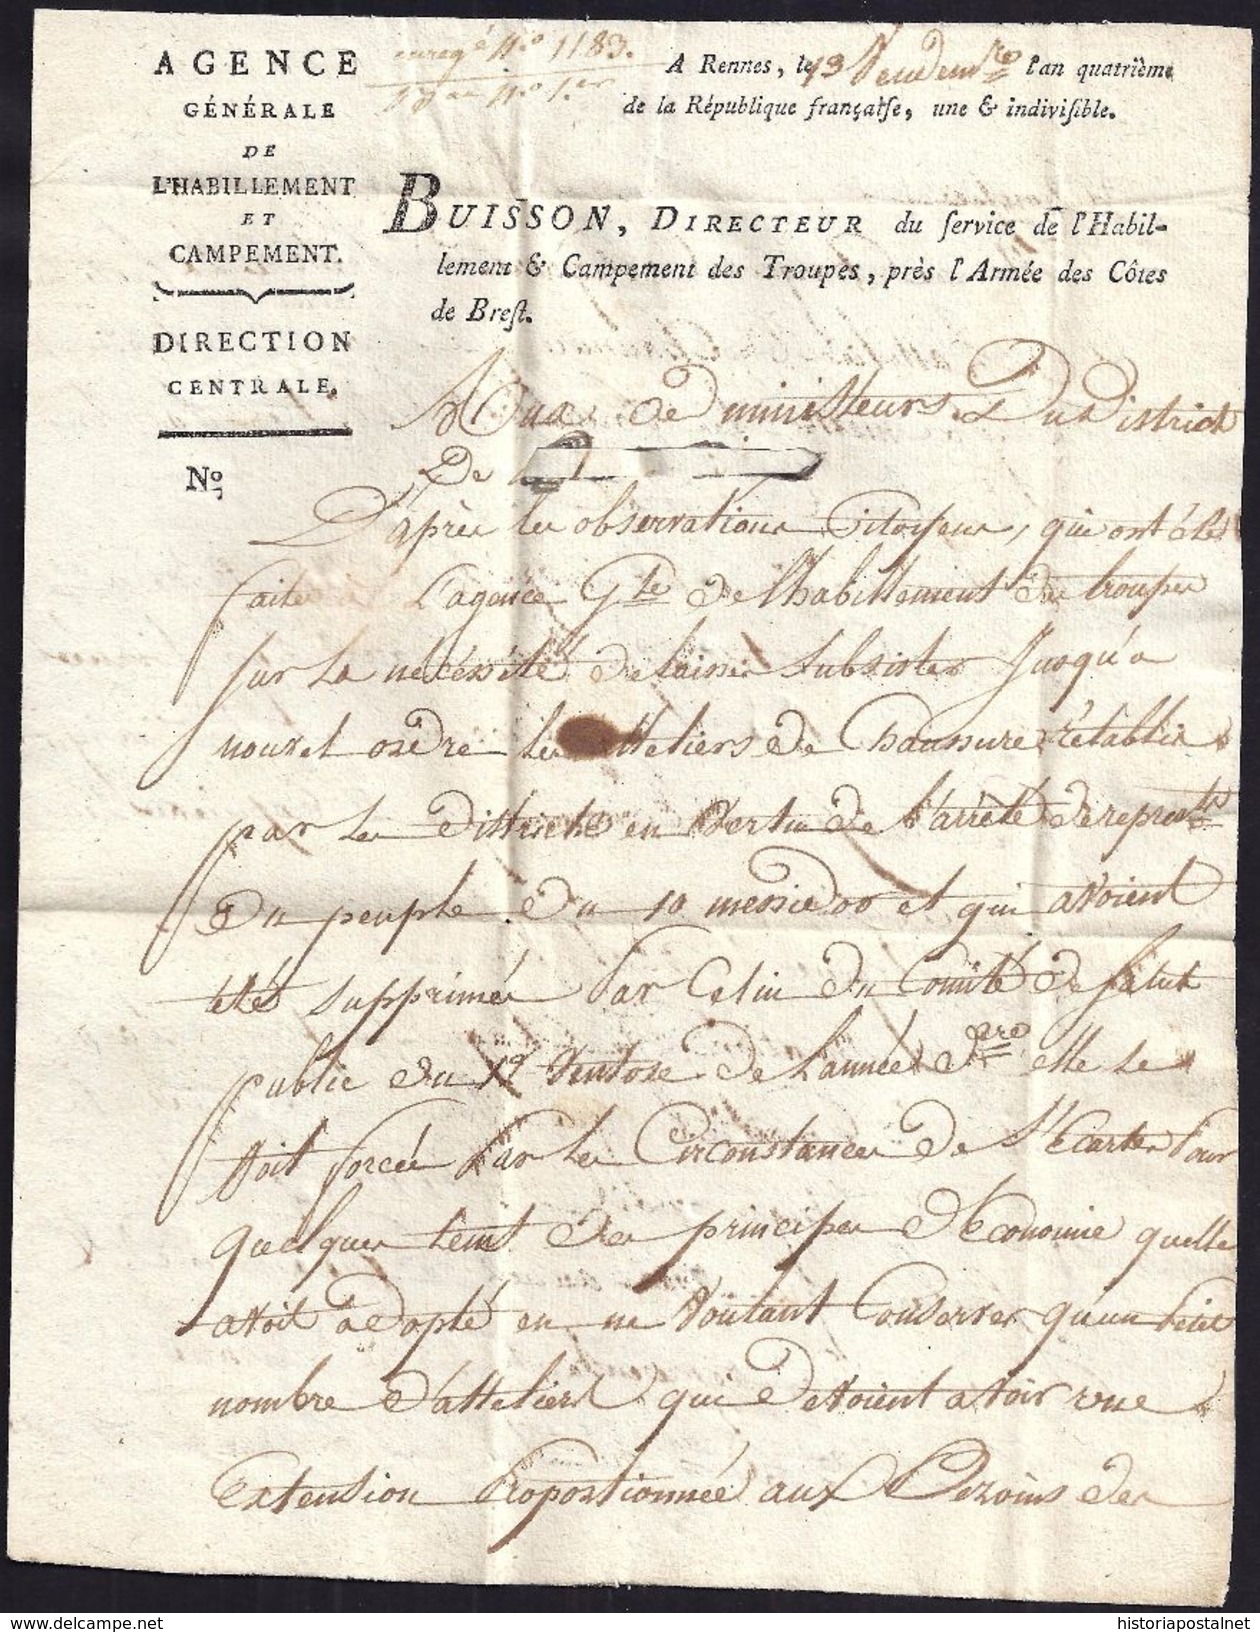 AGENCE
GÉNÉRALE
DE
L'HABILLEMENT
ET
CAMPEMENT.
DIRECTION
CENTRALE.
No.
enregé No 1183.
No 1.er
A Rennes, le 13 Vendemre l'an quatrième
de la République françaıſe, une & indiviſible.
BUISSON, DIRECTEUR du ſervice de l'Habil-
lement & Campement des Troupes, près l'Armée des Côtes
de Breſt.
Aux administrateurs Du District
De
D'après les observations Citoyens, qui ont été
faites a L'agence Gle de l'habillement des troupes
sur La nécéssité de laisser subsister Jusqu'a
nouvel ordre les atteliers de Chaussure établis
par les districts en vertu de l'arrêté de represts
du peuple du 10 messidor et qui avoient
étés supprimés Par Celui du Comité de salut
public du 19 Ventose de L'année dre elle se
voit forcée Par les Circonstances de s'Ecarter Pour
quelques tems des principes d'Economie quelle
avoit adopté en ne voulant Conserver qu'un Petit
nombre d'atteliers qui devoient avoir une
Extension Proportionnée aux Bezoins des
historiapostalnet